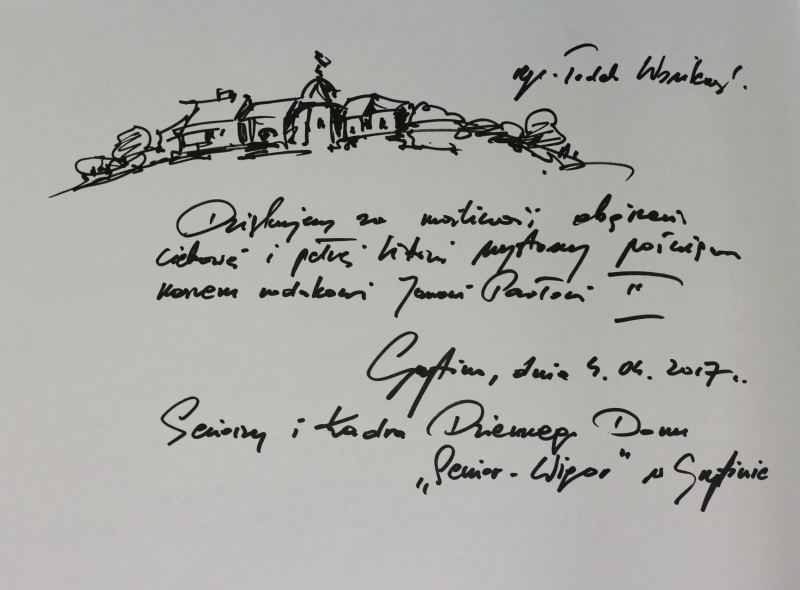 rys. Tadek
Dziękujemy za możliwość obejrzenia
ciekawej i pełnej historii wystawy poświęconej
naszemu rodakowi Janowi Pawłowi II
Gryfino, dnia 4.04.2017r.
Seniorzy i kadra Dziennego Domu
„Senior-Wigor" w Gryfinie